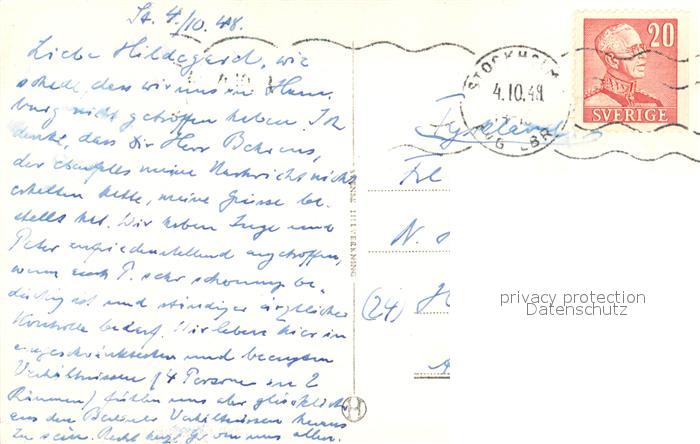 St. 4./10.48.
Liebe Hildegard, wie
schade, dass wir uns in Ham-
burg nicht getroffen haben. Ich
denke, dass Dir Herr Behrens,
der ebenfalls meine Nachricht nicht
erhalten hatte, meine Grüsse be-
stellt hat. Wir haben Inge und
Peter zufriedenstellend angetroffen,
wenn auch P. sehr schonungsbe-
dürftig ist und ständiger ärztlicher
Kontrolle bedarf. Wir leben hier in
eingeschränktesten und beengten
Verhältnissen (4 Personen in 2
Räumen) fühlen uns aber glücklich
aus den Berliner Verhältnissen heraus
zu sein. Recht herzl. Gr. von uns allen.
SVENSK TILLVERKNING
H
STOCKHOLM
4.10.48
20
SVERIGE
Tyskland
Frl
N. s
(24) H
privacy protection
Datenschutz